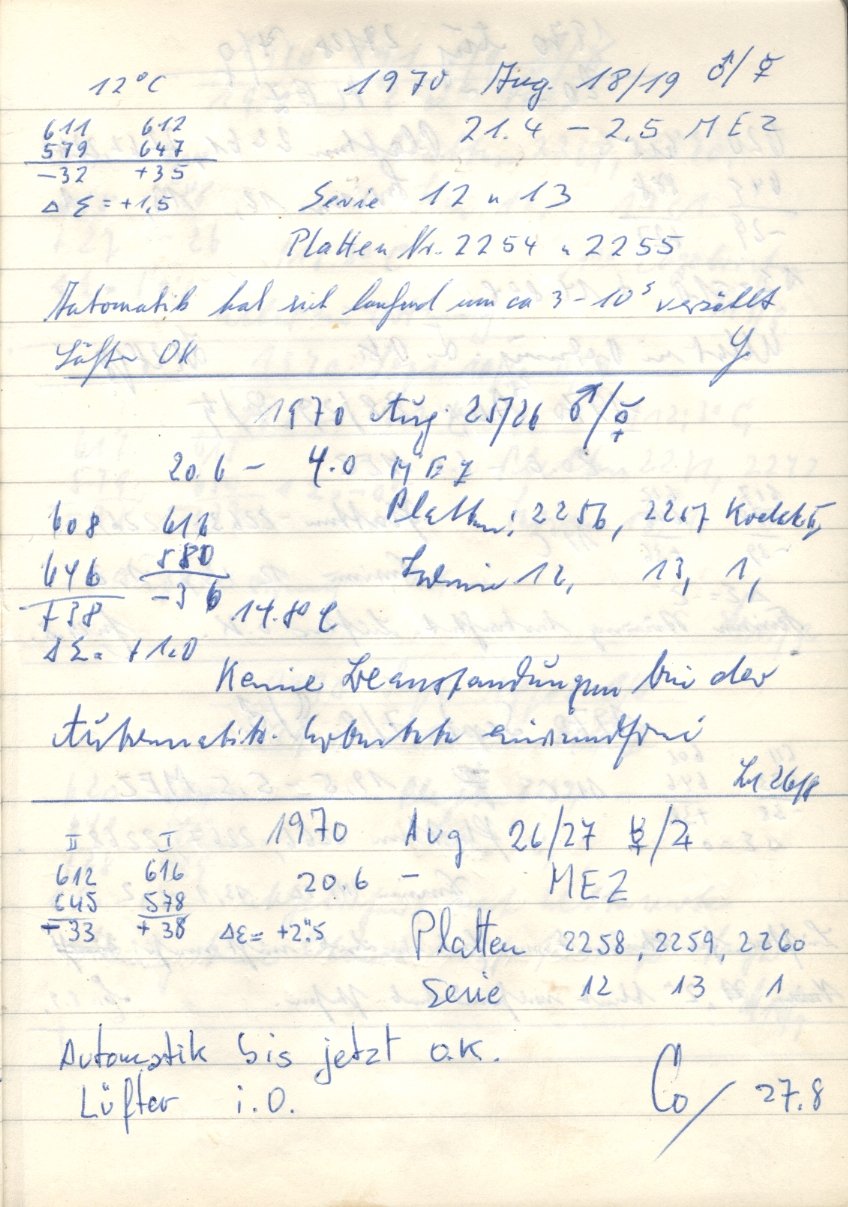 12°C 1970 Aug. 18/19 ♂/☿
611 612 21.4 – 2.5 MEZ
579 647
-32 +35
Δ Σ = +1,5 Serie 12 u 13
Platten Nr. 2254 u 2255
Automatik hat sich laufend um ca 3-10ˢ verzählt
Lüfter OK
1970 Aug. 25/26 ♂/☿
20.6 – 4.0 MEZ
608 616 Platten: 2256, 2257
646 580 12, 13, 1,
+38 -36 14.8° C
Δ Σ = +1.0
Keine Beanstandungen bei der
Automatik. Arbeitete einwandfrei
26/8
1970 Aug 26/27 ☿/♃
II I
612 616 20.6 – MEZ
645 578
+33 +38 ΔΣ = +2".5 Platten 2258, 2259, 2260
Serie 12 13 1
Automatik bis jetzt o.K.
Lüfter i.O. Co/ 27.8